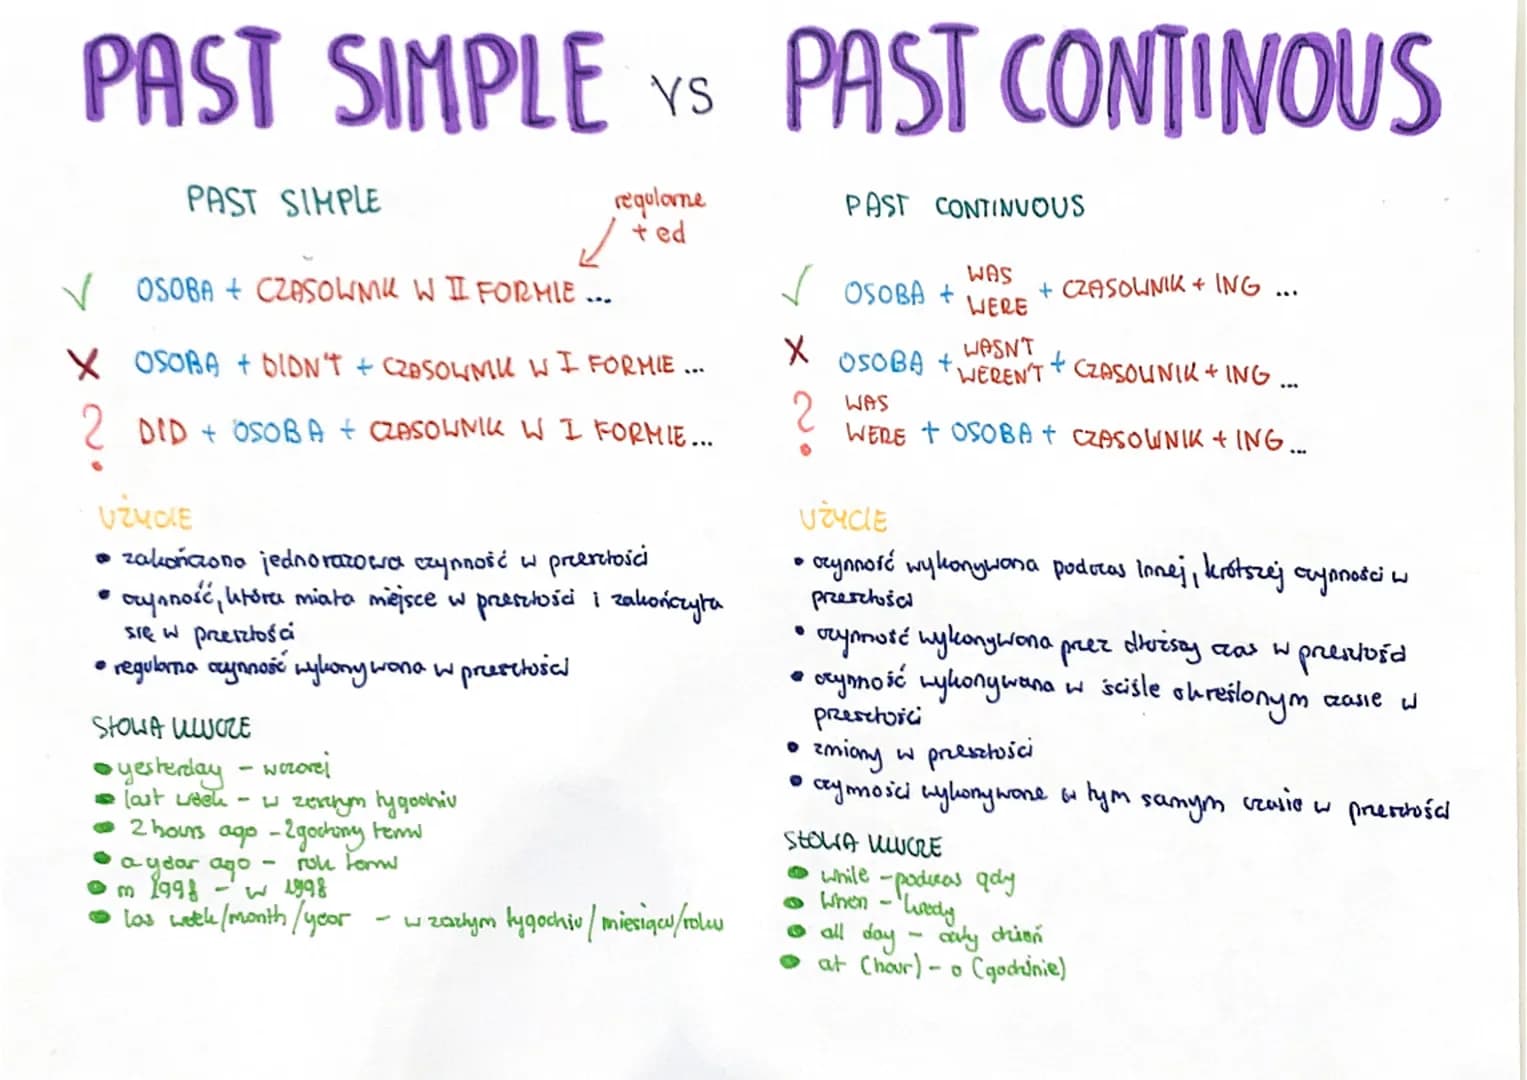 PAST SIMPLE VS PAST CONTINOUS
PAST SIMPLE
regularne
+ ed
✓ OSOBA + CZASOWNIK W II FORMIE ...
X OSOBA + DIDN'T + CZASOWNIK W I FORMIE ...
? DID + OSOBA + CZASOWNIK W I FORMIE...
UŻYCIE
• zakończona jednorazowa czynność w przeszłości
• czynność, która miała miejsce w przeszłości i zakończyła
się w przeszłości
• regularna czynność wykonywana w przeszłości
SŁOWA KLUCZE
• yesterday - wczoraj
• last week - w zeszłym tygodniu
• 2 hours ago - 2 godziny temu
• a year ago - rok temu
• in 1998 - w 1998
• las week/month/year - w zeszłym tygodniu/miesiącu/roku
PAST CONTINUOUS
✓ OSOBA + WAS
WERE + CZASOWNIK + ING ...
X OSOBA + WASN'T
WEREN'T + CZASOWNIK + ING ...
? WAS
WERE + OSOBA + CZASOWNIK + ING...
UŻYCIE
• czynność wykonywana podczas innej, krótszej czynności w
przeszłości
• czynność wykonywana przez dłuższy czas w przeszłości
• czynność wykonywana w ściśle określonym czasie w
przeszłości
• zmiany w przeszłości
• czynności wykonywane w tym samym czasie w przeszłości
SŁOWA KLUCZE
• while - podczas gdy
• when - kiedy
• all day - cały dzień
• at (hour) - o (godzinie)